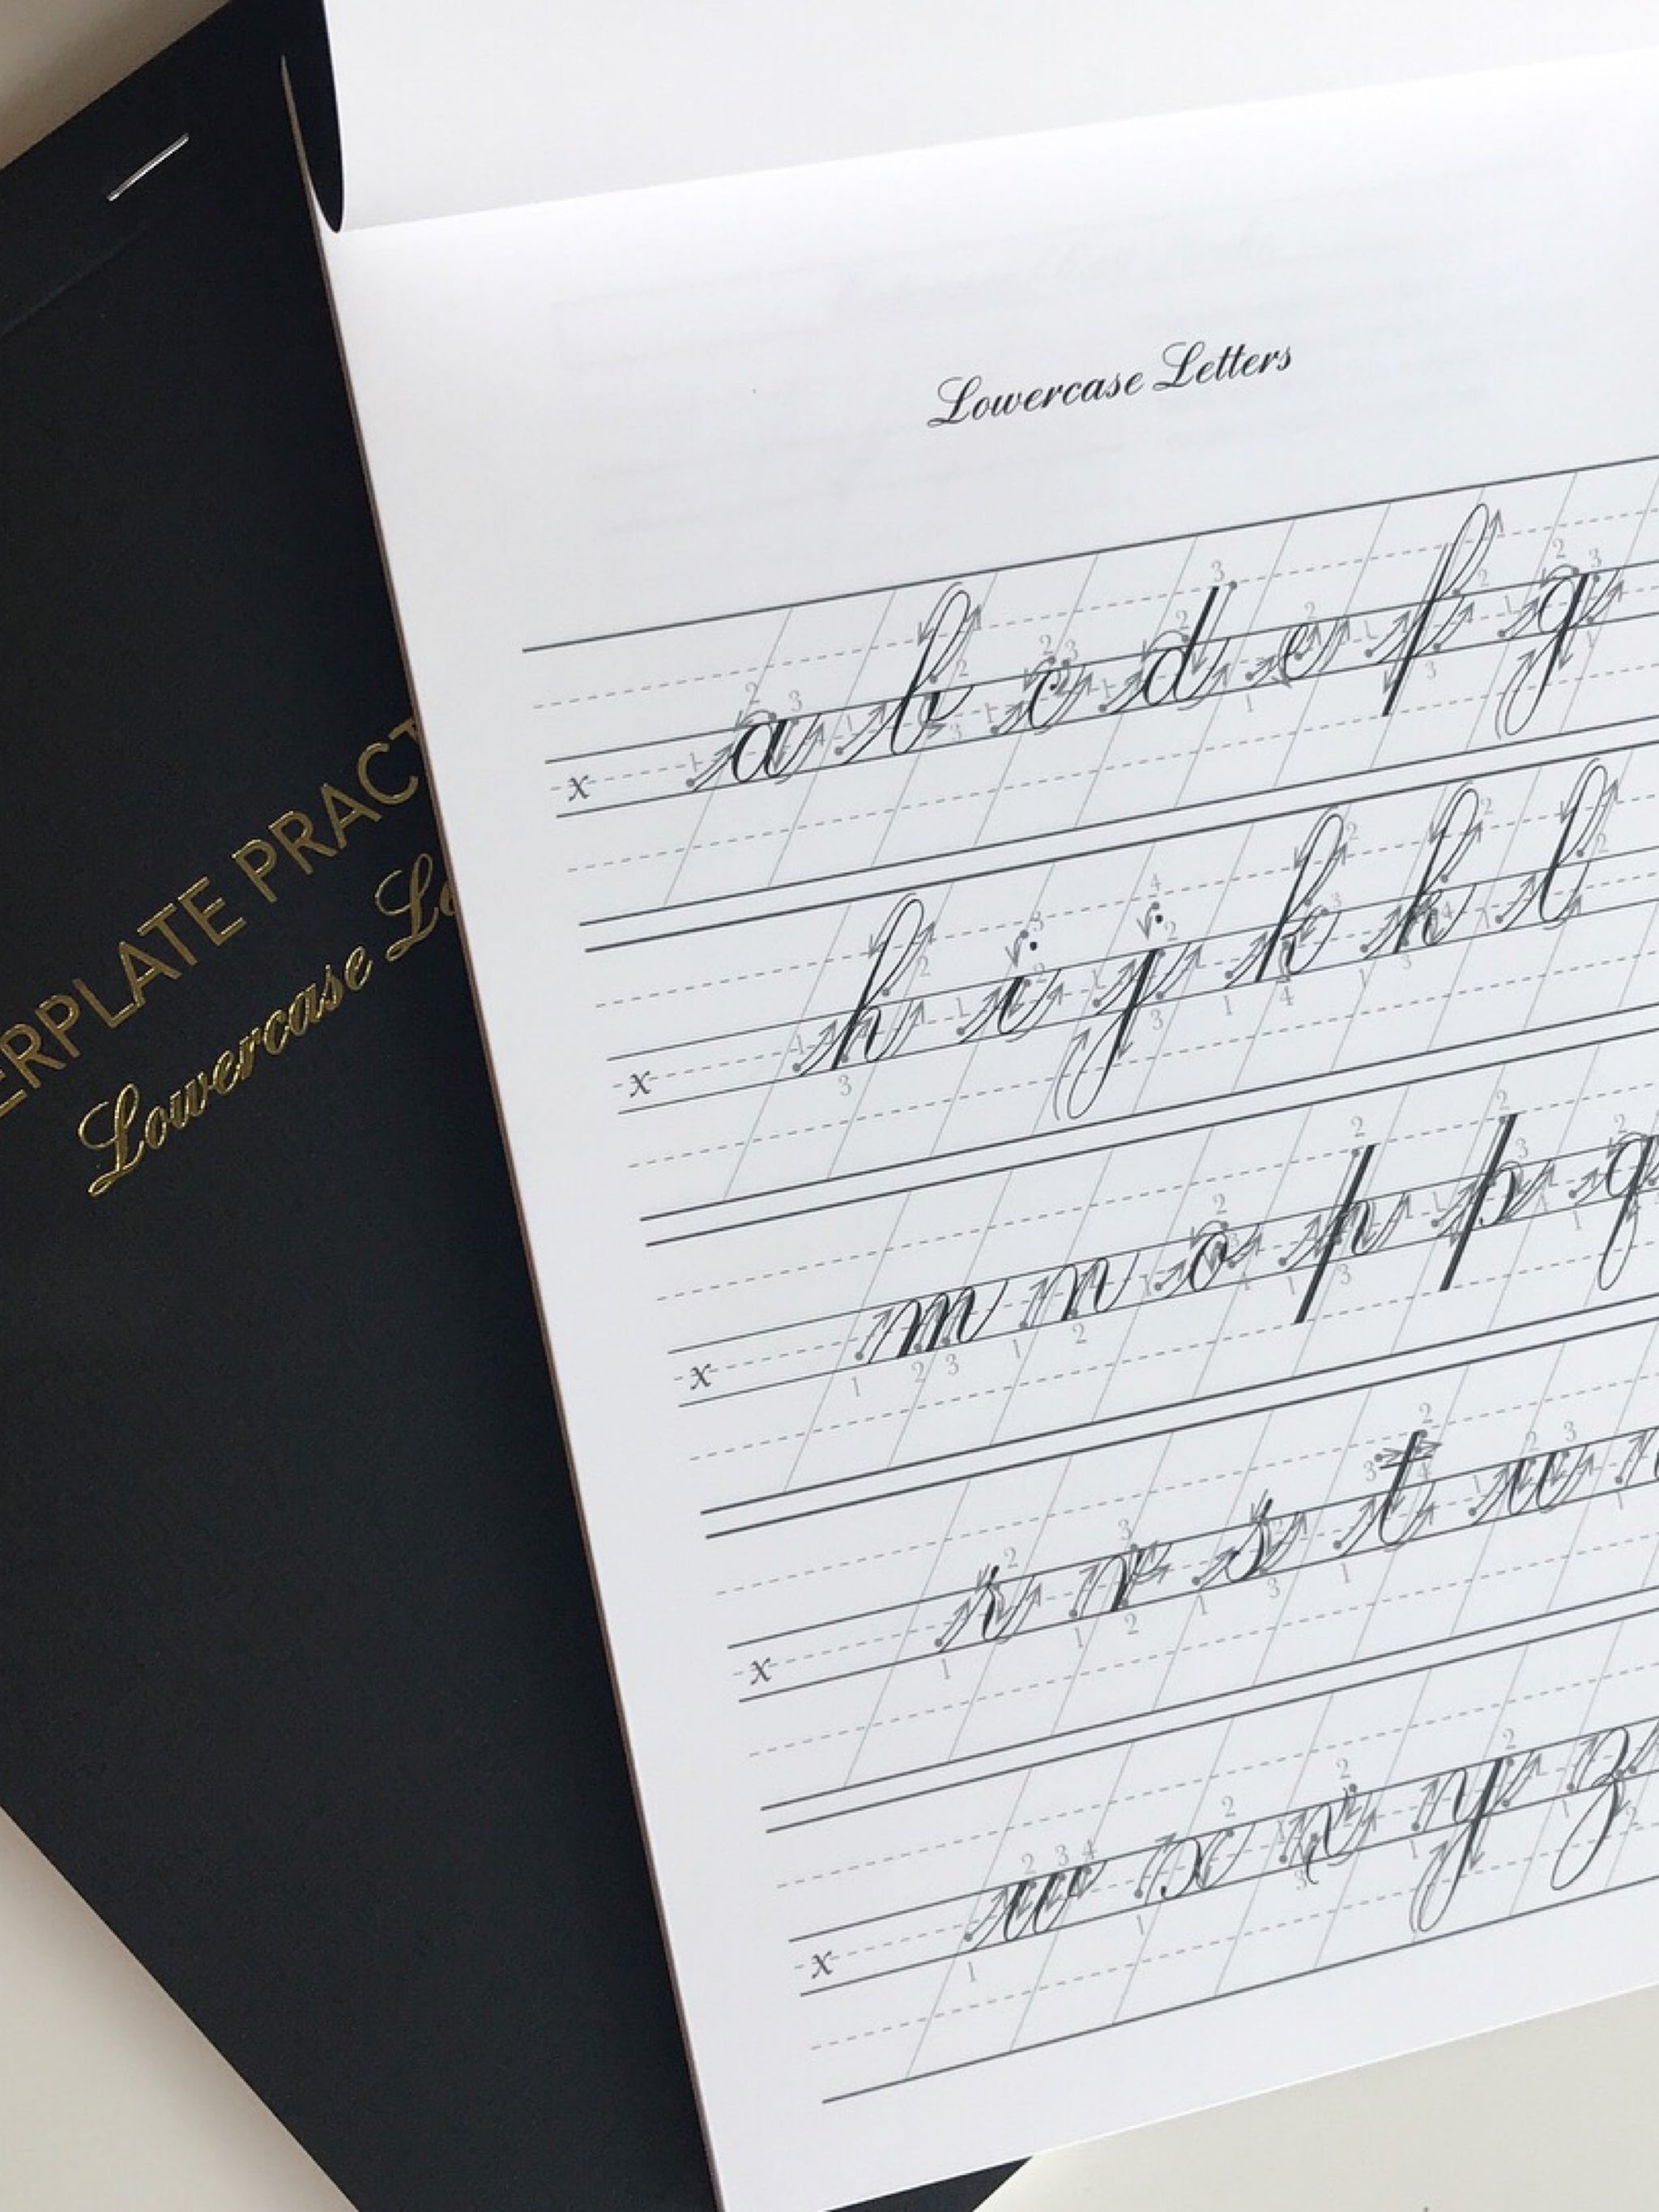 ERPLATE PRACT
Lowercase Le
Lowercase Letters
a b c d e f g
x
h i j k k l
x
m n o p p q
x
r r s t u
x
w x x y z
x